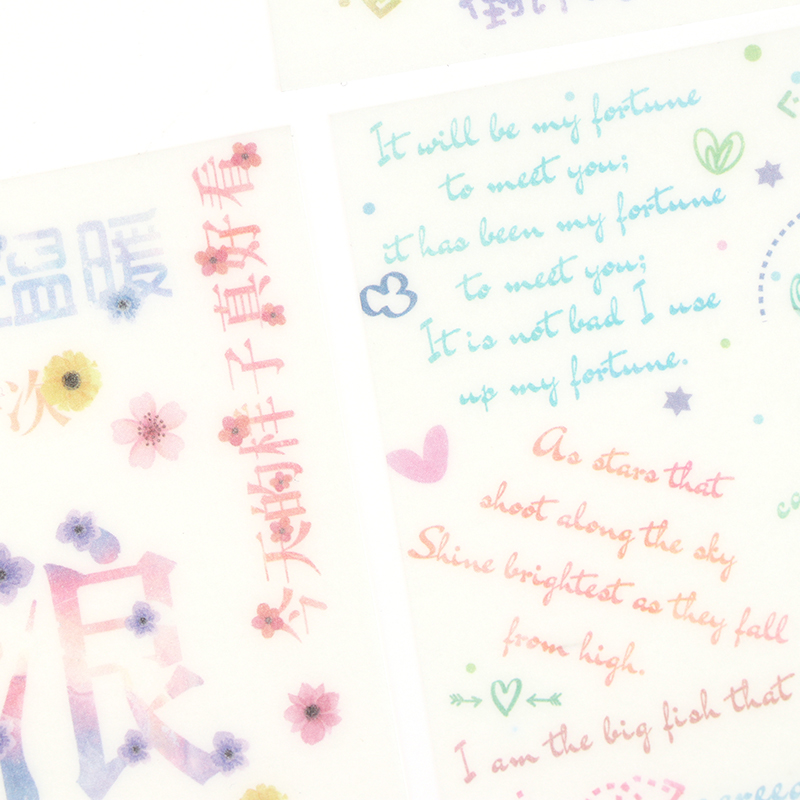 暖
次
今天的样子真好看
It will be my fortune
to meet you;
it has been my fortune
to meet you;
It is not bad I use
up my fortune.
As stars that
shoot along the sky
Shine brightest as they fall
from high.
I am the big fish that